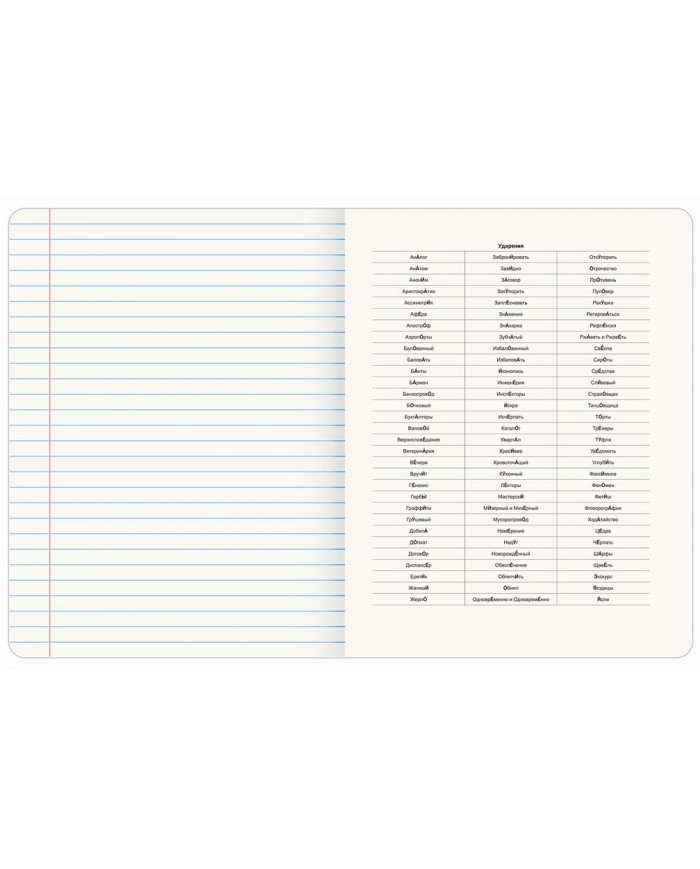 Ударения
АнАлог ЗабронИровать ОткУпорить
АнАтом ЗавИдно Отрочество
АнонИм ЗАговор ПрОтивень
АристокрАтия ЗакУпорить ПулОвер
АссиметрИя ЗаплЕсневеть РакУшка
АфЕра ЗнАмение РетировАться
АпострОф ЗнАхарка РефлЕксия
АэропОрты ЗубчАтый РжАветь и РжавЕть
БалОванный ИзбалОванный СвЁкла
БаловАть ИзбаловАть СирОты
БАнты Иконопись СрЕдства
БАрмен ИнженЕрия СлИвовый
БензопровОд ИнспЕкторы СтраховщИк
БОчковый Искра ТанцОвщица
БухгАлтеры ИсчЕрпать ТОрты
ВаловОй КаталОг ТрЕнеры
ВероисповЕдание КвартАл ТУфля
ВетеринАрия КрасИвее УвЕдомить
ВЕчери КровоточАщий УглубИть
ВручИт КУхонный ФаксИмиле
ГЕнезис ЛЕкторы ФенОмен
ГербЫ МастерскИ ФетИш
ГраффИти МИзерный и МизЕрный ФлюорогрАфия
ГрУшевый МусоропровОд ХодАтайство
ДобелА НамЕрение ЦЕдра
ДОгмат НедУг ЧЕрпать
ДоговОр НоворождЁнный ШАрфы
ДиспансЕр ОбеспЕчение ЩавЕль
ЕретИк ОблегчИть Экскурс
ЖалюзИ Обнял Ягодицы
ЖерлО ОдноврЕменно и ОдновремЕнно Ясли